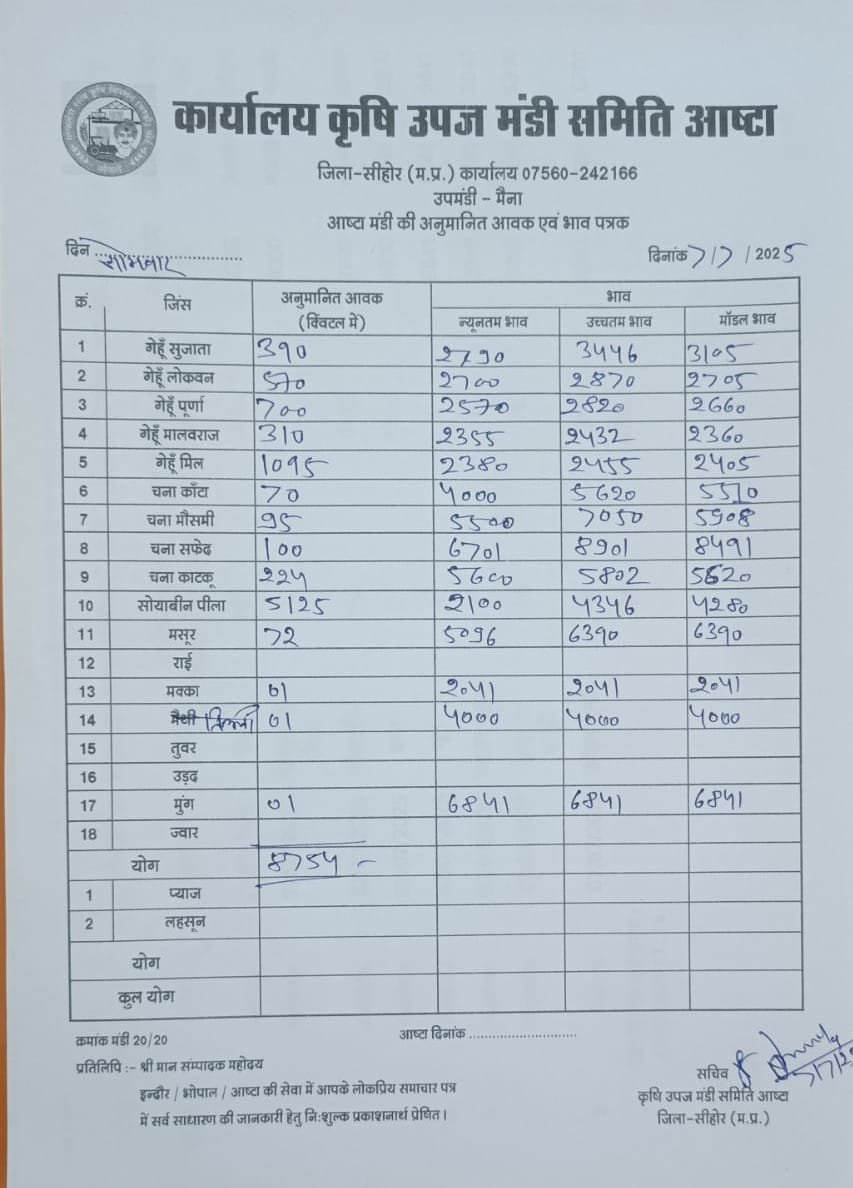 कार्यालय कृषि उपज मंडी समिति आष्टा
जिला-सीहोर (म.प्र.) कार्यालय 07560-242166
उपमंडी - मैना
आष्टा मंडी की अनुमानित आवक एवं भाव पत्रक
दिन सोमवार दिनांक 7/7/2025
क्रं. जिंस अनुमानित आवक (क्विंटल में) भाव
न्यूनतम भाव उच्चतम भाव मॉडल भाव
1 गेहूँ सुजाता 390 2790 3446 3105
2 गेहूँ लोकवन 570 2700 2870 2705
3 गेहूँ पूर्णा 700 2570 2820 2660
4 गेहूँ मालवराज 310 2355 2432 2360
5 गेहूँ मिल 1095 2380 2455 2405
6 चना काँटा 70 4000 5620 5510
7 चना मौसमी 95 5500 7050 5908
8 चना सफेद 100 6701 8901 8491
9 चना काटकू 224 5600 5802 5620
10 सोयाबीन पीला 5125 2100 4346 4280
11 मसूर 72 5096 6390 6390
12 राई
13 मक्का 01 2041 2041 2041
14 मैथी तिल्ली 01 4000 4000 4000
15 तुवर
16 उड़द
17 मुंग 01 6841 6841 6841
18 ज्वार
योग 8754
1 प्याज
2 लहसून
योग
कुल योग
क्रमांक मंडी 20/20 आष्टा दिनांक
प्रतिलिपि :- श्री मान सम्पादक महोदय
इन्दौर / भोपाल / आष्टा की सेवा में आपके लोकप्रिय समाचार पत्र
में सर्व साधारण की जानकारी हेतु नि:शुल्क प्रकाशनार्थ प्रेषित।
सचिव
कृषि उपज मंडी समिति आष्टा
जिला-सीहोर (म.प्र.)